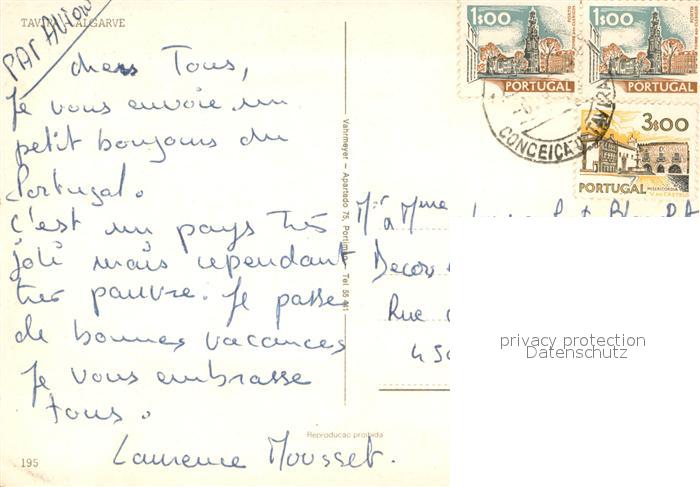 TAVIRA - ALGARVE
PAR AVION
chers Tous,
Je vous envoie un
petit bonjour du
Portugal.
c'est un pays très
joli mais cependant
très pauvre. Je passe
de bonnes vacances
Je vous embrasse
tous.
Laurence Mousset.
195
Reproducao proibida
Vahrmeyer - Apartado 75, Portimão - Tel 55 441
1$00
PORTUGAL
1$00
PORTUGAL
CONCEICAO TAVIRA
3$00
PORTUGAL
MISERICORDIA
V. do CASTELO
Mr & Mme
Decors
Rue
450
privacy protection
Datenschutz